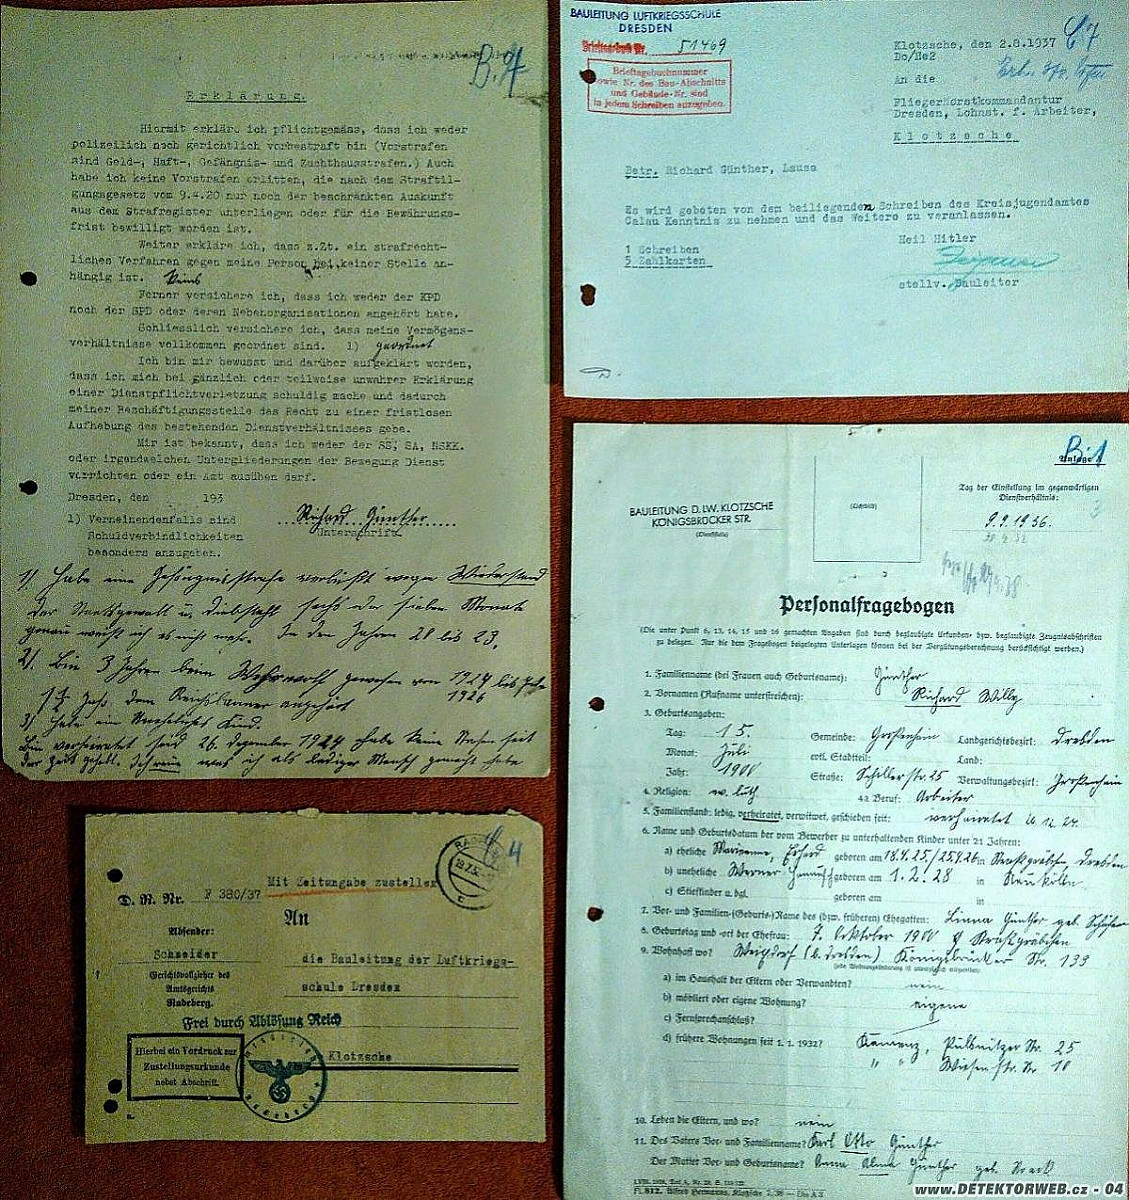 B.4
Erklärung.
Hiermit erkläre ich pflichtgemäss, dass ich weder
polizeilich noch gerichtlich vorbestraft bin (Vorstrafen
sind Geld-, Haft-, Gefängnis- und Zuchthausstrafen.) Auch
habe ich keine Vorstrafen erlitten, die nach dem Straftil-
gungsgesetz vom 9.4.20 nur noch der beschränkten Auskunft
aus dem Strafregister unterliegen oder für die Bewährungs-
frist bewilligt worden ist.
Weiter erkläre ich, dass z.Zt. ein strafrecht-
liches Verfahren gegen meine Person bei keiner Stelle an-
hängig ist.
Ferner versichere ich, dass ich weder der KPD
noch der SPD oder deren Nebenorganisationen angehört habe.
Schliesslich versichere ich, dass meine Vermögens-
verhältnisse vollkommen geordnet sind. 1) geordnet
Ich bin mir bewusst und darüber aufgeklärt worden,
dass ich mich bei gänzlich oder teilweise unwahrer Erklärung
einer Dienstpflichtverletzung schuldig mache und dadurch
meiner Beschäftigungsstelle das Recht zu einer fristlosen
Aufhebung des bestehenden Dienstverhältnisses gebe.
Mir ist bekannt, dass ich weder der SS, SA, NSKK.
oder irgendwelchen Untergliederungen der Bewegung Dienst
verrichten oder ein Amt ausüben darf.
Dresden, den 193
Richard Günther
Unterschrift.
1) Verneinendenfalls sind
Schuldverbindlichkeiten
besonders anzugeben.
1) Habe eine Gefängnisstrafe verbüßt wegen Wiederstand
der Staatsgewalt u. Diebstahl sechs oder sieben Monate
genau weiß ich es nicht mehr. In den Jahren 20 bis 23.
2). Bin 3 Jahren beim Wehrwolf gewesen von 1924 bis
1926
1½ Jahr dem Reichsbanner angehört
3) Habe ein Uneheliches Kind.
Bin verheiratet seid 26. Dezember 1924 habe keine Strafen seit
der Zeit gehabt. was ich als lediger Mensch gemacht habe
BAULEITUNG LUFTKRIEGSSCHULE
DRESDEN
Brieftagebuch Nr. 51469
Brieftagebuchnummer
sowie Nr. des Bau-Abschnitts
und Gebäude-Nr. sind
in jedem Schreiben anzugeben.
Klotzsche, den 2.8.1937
Do/He2
An die
Fliegerhorstkommandantur
Dresden, Lohnst. f. Arbeiter,
Klotzsche
Betr. Richard Günther, Lausa
Es wird gebeten von dem beiliegenden Schreiben des Kreisjugendamtes
Calau Kenntnis zu nehmen und das Weitere zu veranlassen.
Heil Hitler
1 Schreiben
5 Zahlkarten
stellv. Bauleiter
B.1
Anlage
BAULEITUNG D. LW. KLOTZSCHE
KÖNIGSBRÜCKER STR.
(Dienststelle)
(Lichtbild)
Tag der Einstellung im gegenwärtigen
Dienstverhältnis:
9.9.1936.
Personalfragebogen
(Die unter Punkt 6, 13, 14, 15 und 16 gemachten Angaben sind durch beglaubigte Urkunden- bzw. beglaubigte Zeugnisabschriften
zu belegen. Nur die dem Fragebogen beigelegten Unterlagen können bei der Vergütungsberechnung berücksichtigt werden.)
1. Familienname (bei Frauen auch Geburtsname): Günther
2. Vornamen (Rufname unterstreichen): Richard Willy
3. Geburtsangaben:
Tag: 15. Gemeinde: Großenhain Landgerichtsbezirk: Dresden
Monat: Juli evtl. Stadtteil: Land:
Jahr: 1900 Straße: Schillerstr. 25 Verwaltungsbezirk: Großenhain
4. Religion: ev. luth 4a Beruf: Arbeiter
5. Familienstand: ledig, verheiratet, verwitwet, geschieden seit: verheiratet
6. Name und Geburtsdatum der vom Bewerber zu unterhaltenden Kinder unter 21 Jahren:
a) eheliche Marianne, Erhard geboren am 18.4.25./25.9.26 in Straßgräbchen Dresden
b) uneheliche Werner geboren am 1.2.28 in Neukölln
c) Stiefkinder u. dgl. geboren am in
7. Vor- und Familien-(Geburts-)Name des (bzw. früheren) Ehegatten: Linna Günther geb.
8. Geburtstag und -ort der Ehefrau: 7. Oktober 1900 Straßgräbchen
9. Wohnhaft wo? Weixdorf (b. Dresden) Königsbrücker Str. 139
a) im Haushalt der Eltern oder Verwandten? nein
b) möbliert oder eigene Wohnung? eigene
c) Fernsprechanschluß?
d) frühere Wohnungen seit 1. 1. 1932? Kamenz, Pulsnitzer Str. 25
" " Wiesenstr. Nr 10
10. Leben die Eltern, und wo? nein
11. Des Vaters Vor- und Familienname? Karl Otto Günther
Der Mutter Vor- und Geburtsname? Anna Alma Günther geb.
4
D. R. Nr. F 380/37
Mit Zeitangabe zustellen
An
Absender:
Schneider
Gerichtsvollzieher des
Amtsgerichts
Radeberg.
die Bauleitung der Luftkriegs-
schule Dresden
Frei durch Ablösung Reich
Klotzsche
Hierbei ein Vordruck zur
Zustellungsurkunde
nebst Abschrift.
www.DETEKTORWEB.cz - 04